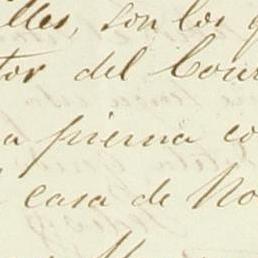 lles, son los q
tor del Cour
a pierna co
casa de No